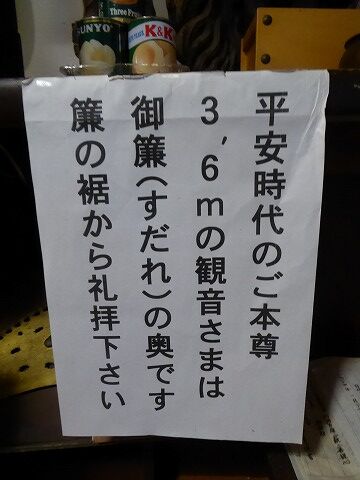 Three Fru
SUNYO
K&K
平安時代のご本尊
3,6mの観音さまは
御簾(すだれ)の奥です
簾の裾から礼拝下さい